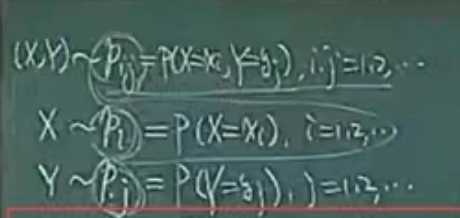 (X,Y)~P_{ij}=P(X=x_i,Y=y_j), i.j=1,2,⋯
X~P_{i·}=P(X=x_i), i=1,2,⋯
Y~P_{·j}=P(Y=y_j), j=1,2,⋯